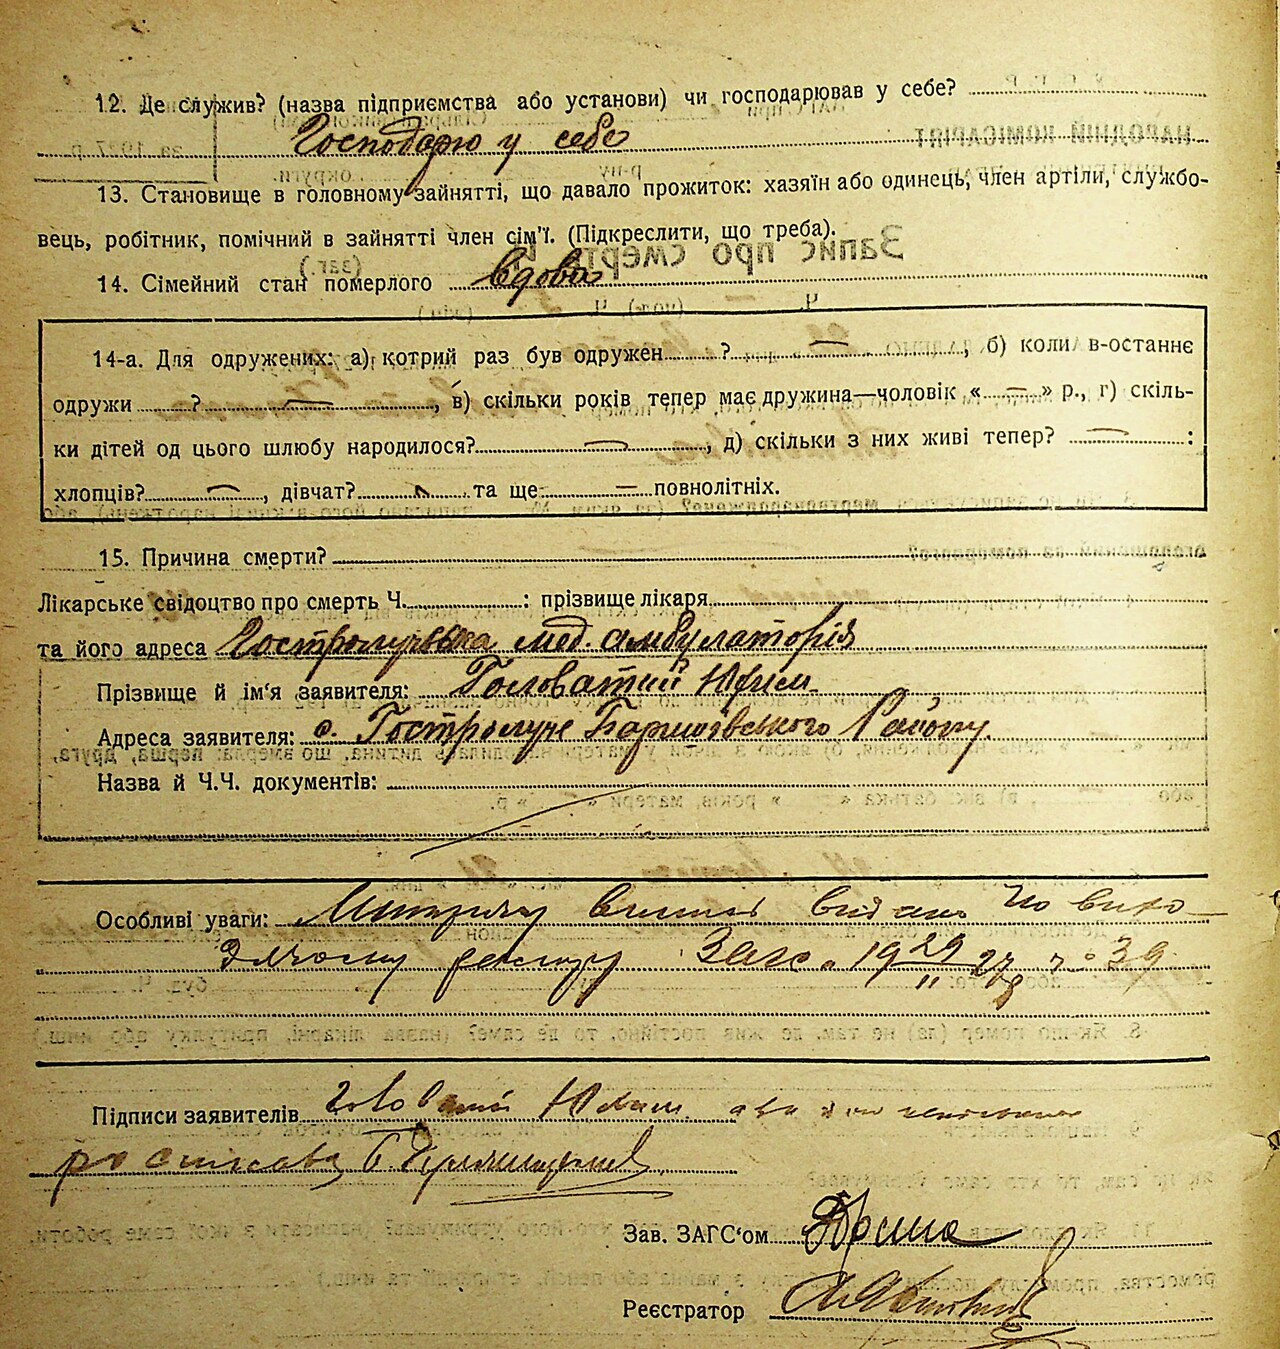 12. Де служив? (назва підприємства або установи) чи господарював у себе?
Господарю у себе
13. Становище в головному зайнятті, що давало прожиток: хазяїн або одинець, член артіли, службо-
вець, робітник, помічний в зайнятті член сім'ї. (Підкреслити, що треба).
14. Сімейний стан померлого вдова
14-а. Для одружених: а) котрий раз був одружен ? —, б) коли в-останнє
одружи ? —, в) скільки років тепер має дружина—чоловік « — » р., г) скіль-
ки дітей од цього шлюбу народилося? —, д) скільки з них живі тепер? — :
хлопців? —, дівчат? — та ще — повнолітніх.
15. Причина смерти?
Лікарське свідоцтво про смерть Ч. : прізвище лікаря
та його адреса Гостролучська мед. амбулаторія
Прізвище й ім'я заявителя: Головатий Юхим
Адреса заявителя: с. Гостролуче Баришівського Району.
Назва й Ч.Ч. документів:
Особливі уваги: видано по вихо-
дячому Загс 1929 27 39
Підписи заявителів Головатий Юхим
росписався Б.
Зав. ЗАГС'ом
Реєстратор